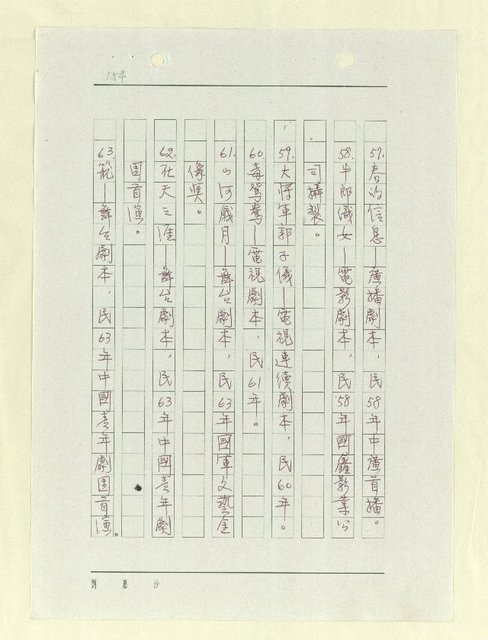 57.春的信息—廣播劇本,民58年中廣首播。
58.牛郎織女—電影劇本,民58年國鑫影業公
司攝製。
59.大將軍郭子儀—電視連續劇本,民60年。
60.毒鴛鴦—電視劇本,民61年。
61.山河歲月—舞台劇本,民63年國軍文藝金
像獎。
62.在天之涯—舞台劇本,民63年中國青年劇
團首演。
63.筑—舞台劇本,民63年中國青年劇團首演。